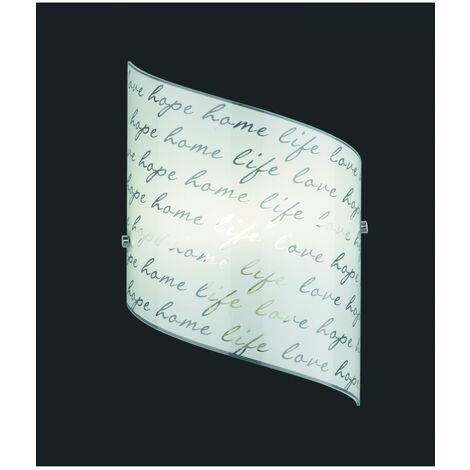 love hope home life love
hope home life love
hope home life love
hope home life love
hope home life love
hope home life love
hope home life love hope